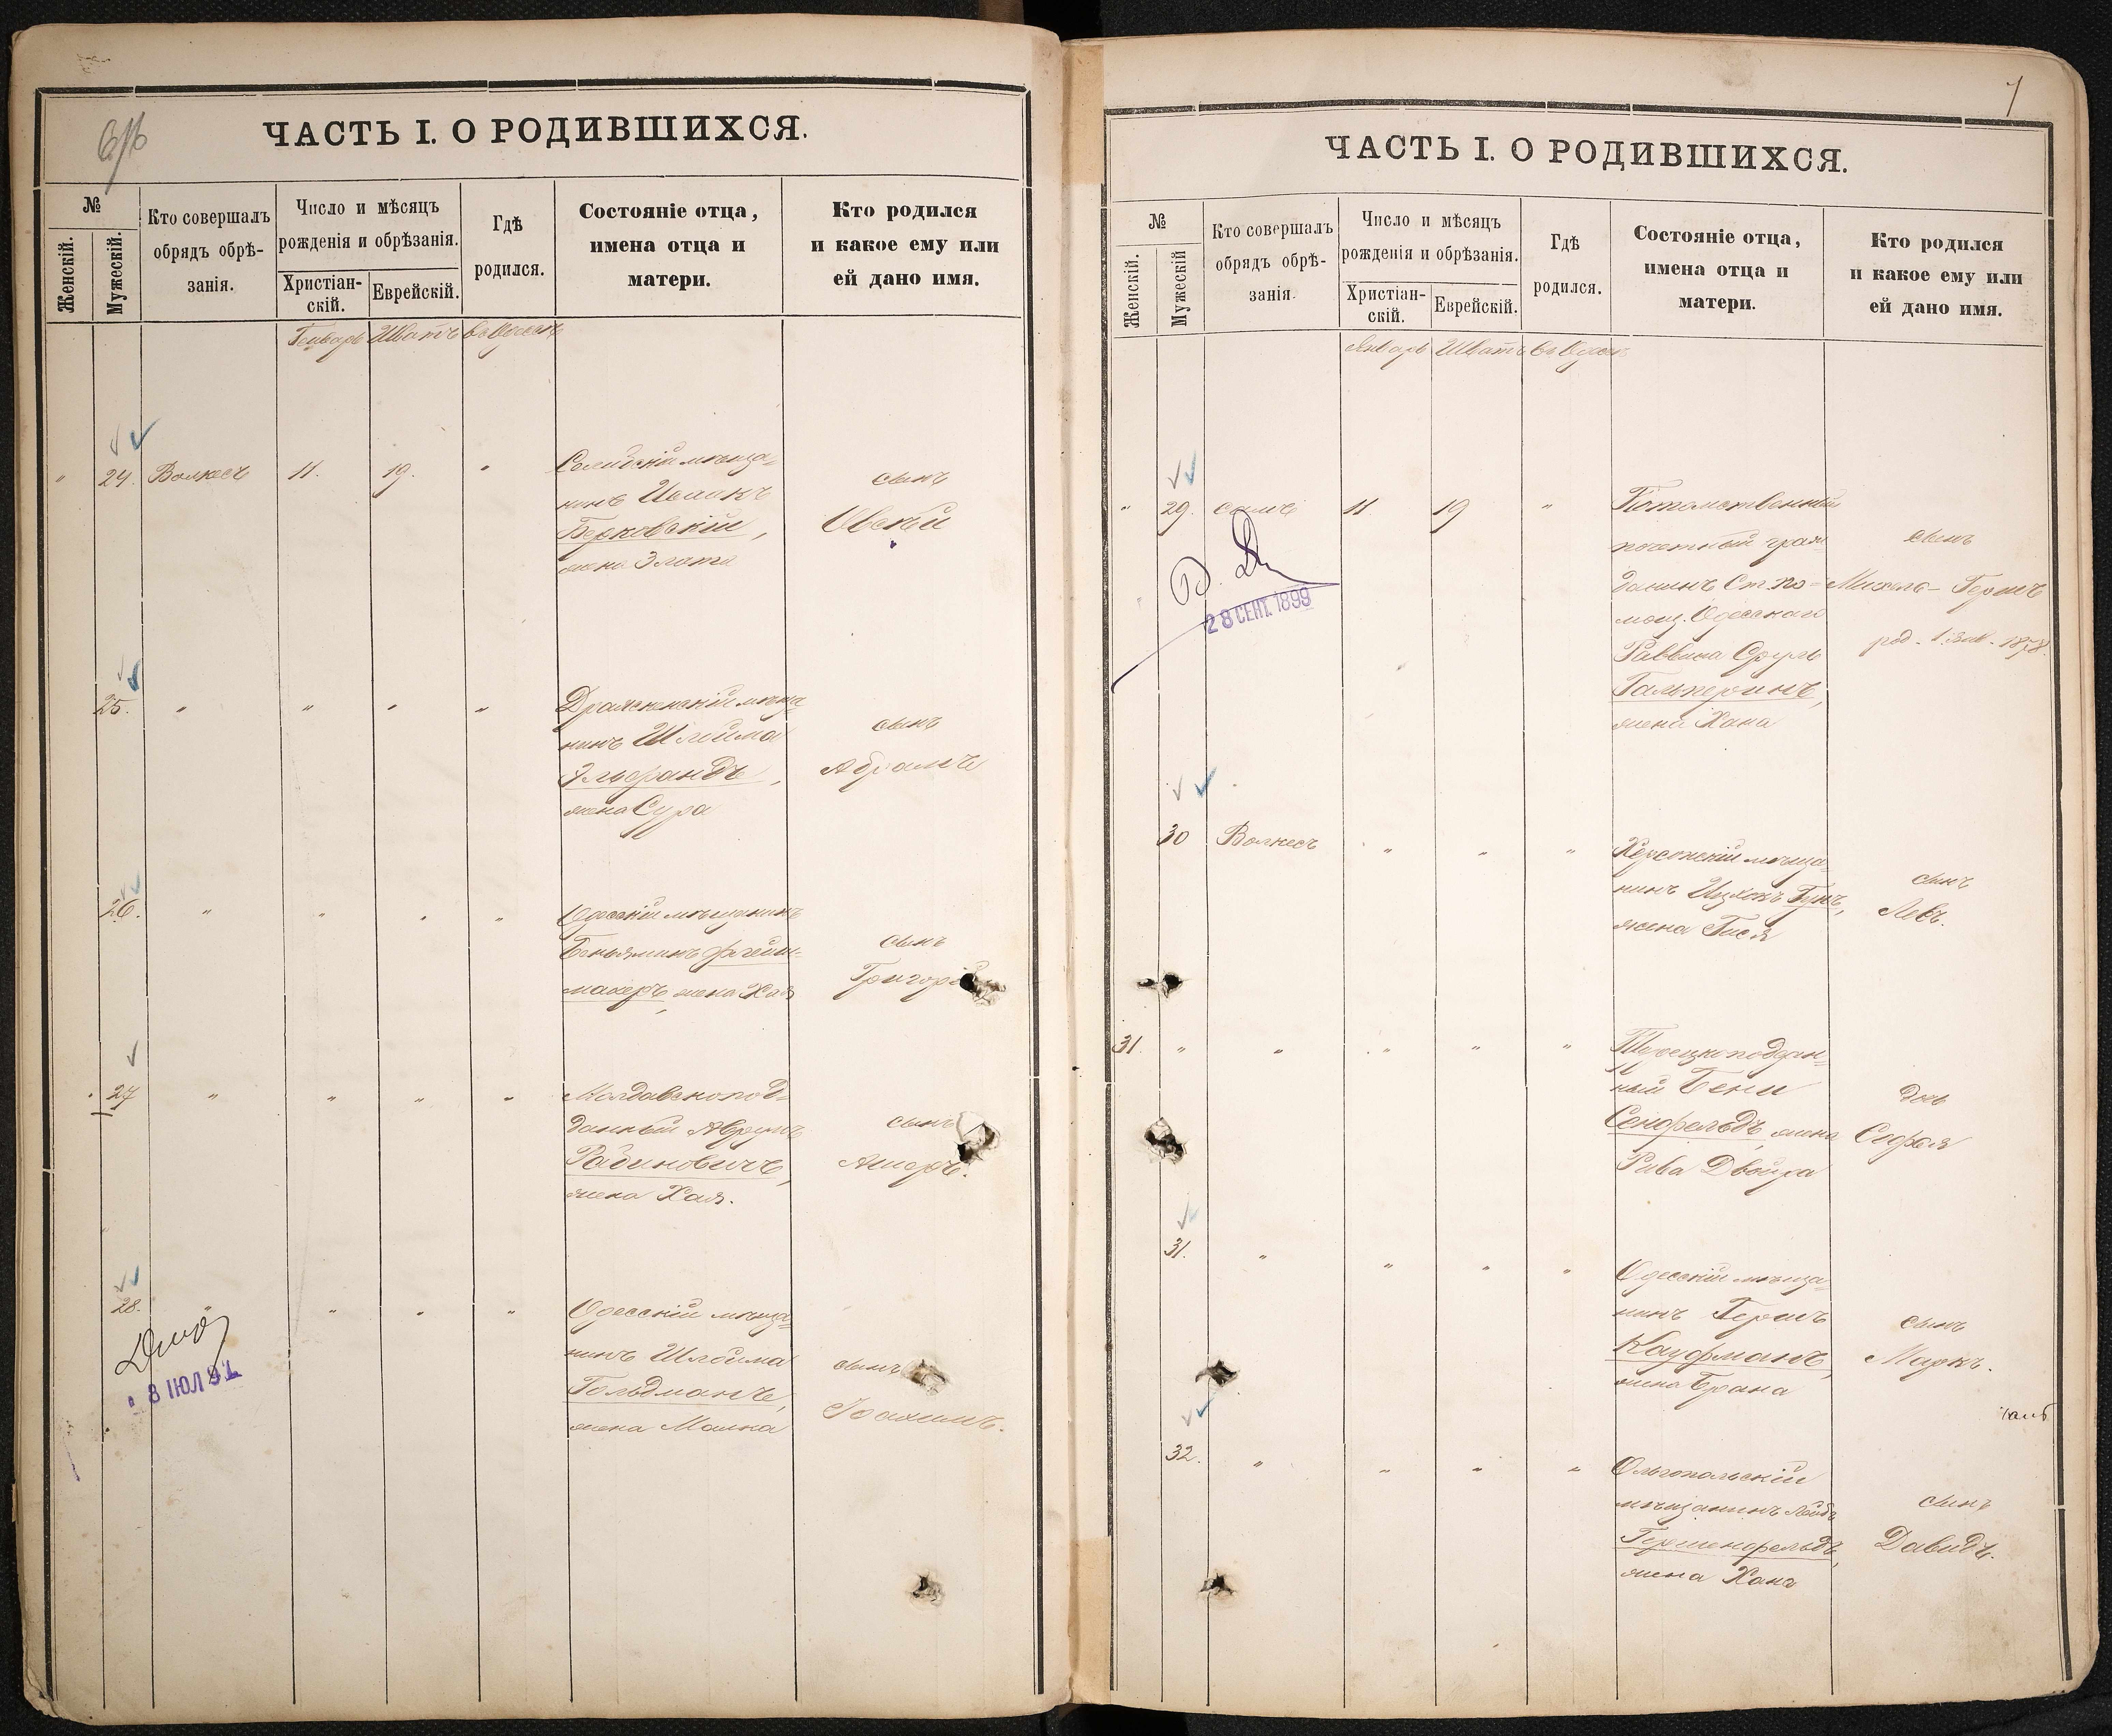 ЧАСТЬ I. О РОДИВШИХСЯ.
№
Женскій.
Мужескій.
Кто совершалъ
обрядъ обрѣ-
занія.
Число и мѣсяцъ
рожденія и обрѣзанія.
Христіан-
скій.
Еврейскій.
Гдѣ
родился.
Состояніе отца,
имена отца и
матери.
Кто родился
и какое ему или
ей дано имя.
Генварь Шватъ въ Одессѣ
" 24. Волкесъ 11. 19. "
мѣща-
нинъ Ицикъ
Берковскій,
жена Злата
сынъ
Овсѣй
25. " " " "
мѣща-
нинъ Шлёйма
Эльфандъ,
жена Сура
сынъ
Абрамъ
26. " " " "
Одесскій мѣщанинъ
Беньяминъ Флейш-
махеръ, жена Хая
сынъ
Григорій
27 " " " "
Молдавскопод-
данный Аврумъ
Рабиновичъ,
жена Хая.
сынъ
Ашеръ.
28. " " " "
8 ІЮЛ 91
Одесскій мѣща-
нинъ Шлёйма
Гольдманъ,
жена Малка
сынъ
Іоахимъ.
7
ЧАСТЬ I. О РОДИВШИХСЯ.
№
Женскій.
Мужескій
Кто совершалъ
обрядъ обрѣ-
занія.
Число и мѣсяцъ
рожденія и обрѣзанія.
Христіан-
скій.
Еврейскій.
Гдѣ
родился.
Состояніе отца,
имена отца и
матери.
Кто родился
и какое ему или
ей дано имя.
Январь Шватъ въ Одессѣ
" 29. самъ 11 19 "
28 СЕНТ. 1899
Потомственный
почетный граж-
данинъ Ст. по-
мощ. Одесскаго
Раввина Сруль
Гальперинъ,
жена Хана
сынъ
Михель-Гершъ
род. 1 янв. 1878.
30 Волкесъ " " "
Херсонскій мѣща-
нинъ Ицхокъ Гунъ,
жена Гися
сынъ
Левъ.
31. " " " " "
Турецкоподдан-
ный Бени
Сенфельдъ, жена
Рива Двойра
дочь
Софья
31. " " " "
Одесскій мѣща-
нинъ Гершъ
Кауфманъ,
жена Брана
сынъ
Маркъ.
32. " " " "
Ольгопольскій
мѣщанинъ Лейбъ
Герценфельдъ,
жена Хана
сынъ
Давидъ.